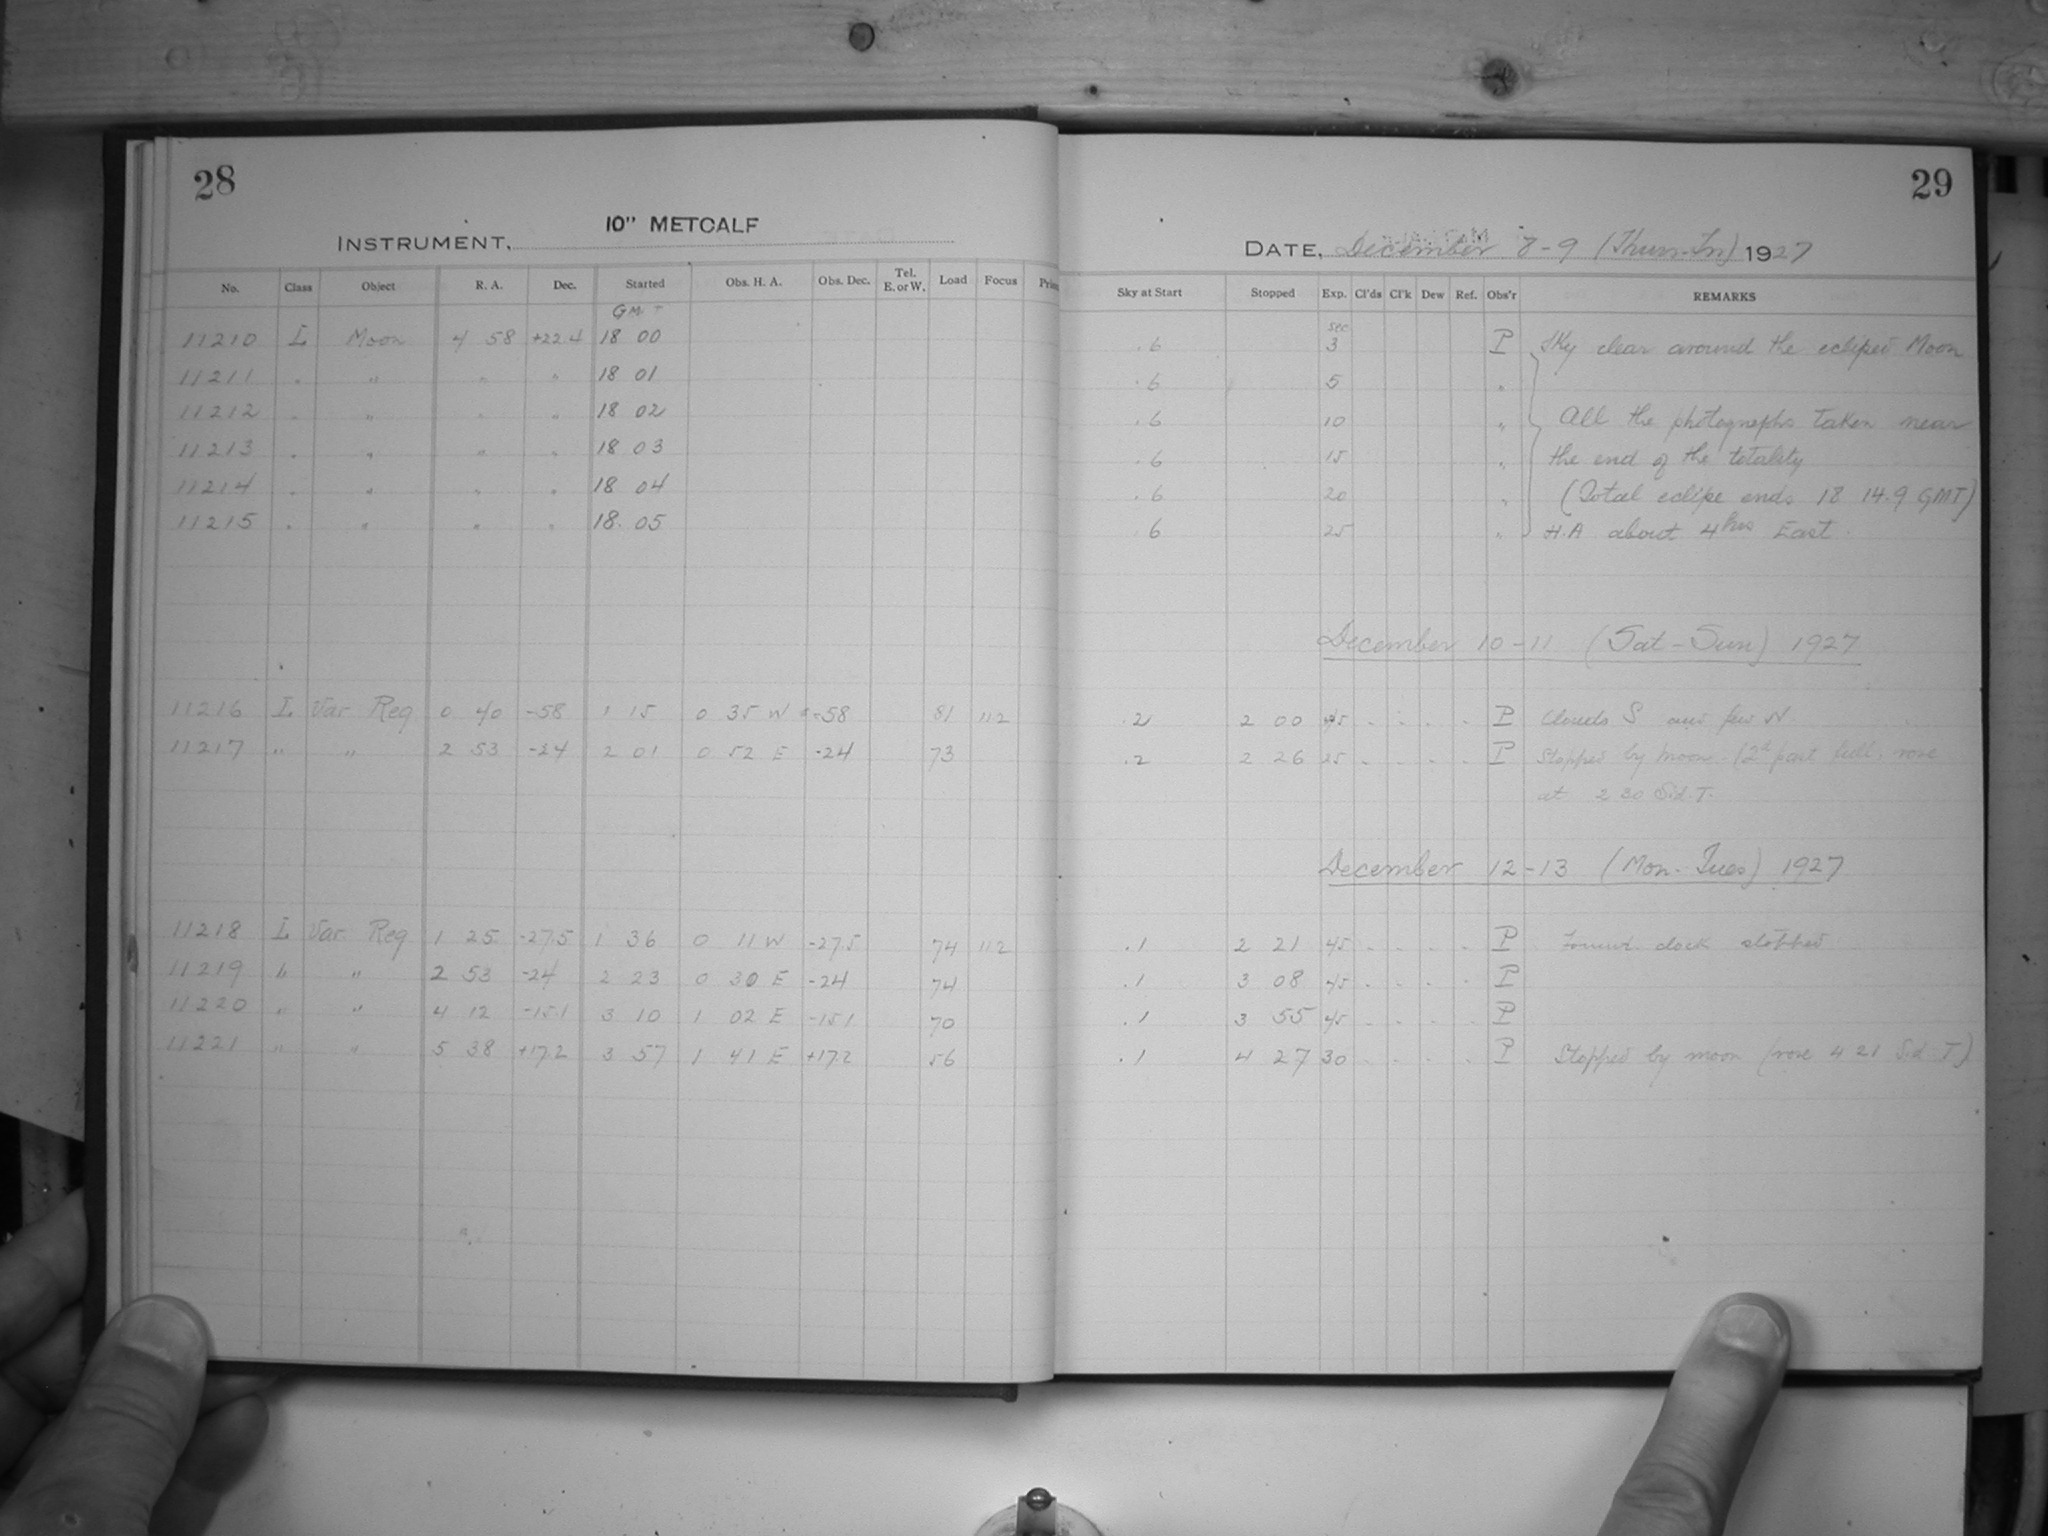 28
INSTRUMENT, 10" METCALF
No. Class Object R. A. Dec. Started Obs. H. A. Obs. Dec. Tel. E. or W. Load Focus
GMT
11210 I Moon 4 58 +22.4 18 00
11211 " " " " 18 01
11212 " " " " 18 02
11213 " " " " 18 03
11214 " " " " 18 04
11215 " " " " 18. 05
11216 I Var Reg 0 40 -58 1 15 0 35 W -58 81 112
11217 " " 2 53 -24 2 01 0 52 E -24 73
11218 I Var. Reg 1 25 -27.5 1 36 0 11 W -27.5 74 112
11219 " " 2 53 -24 2 23 0 30 E -24 74
11220 " " 4 12 -15.1 3 10 1 02 E -15.1 70
11221 " " 5 38 +17.2 3 57 1 41 E +17.2 56
29
DATE, December 8-9 (Thurs-Fri) 1927
Sky at Start Stopped Exp. Cl'ds Cl'k Dew Ref. Obs'r REMARKS
sec
.6 3 P Sky clear around the eclipsed Moon
.6 5 "
.6 10 " All the photographs taken near
.6 15 " the end of the totality
.6 20 " (Total eclipse ends 18 14.9 GMT)
.6 25 " H.A about 4hrs East.
December 10-11 (Sat-Sun) 1927
.2 2 00 45 - - - - P Clouds S and few N.
.2 2 26 25 - - - - P Stopped by moon (2d past full, rose
at 2 30 Sid. T.
December 12-13 (Mon-Tues) 1927
.1 2 21 45 - - - - P clock stopped
.1 3 08 45 - - - - P
.1 3 55 45 - - - - P
.1 4 27 30 - - - - P Stopped by moon (rose 4 21 Sid T)